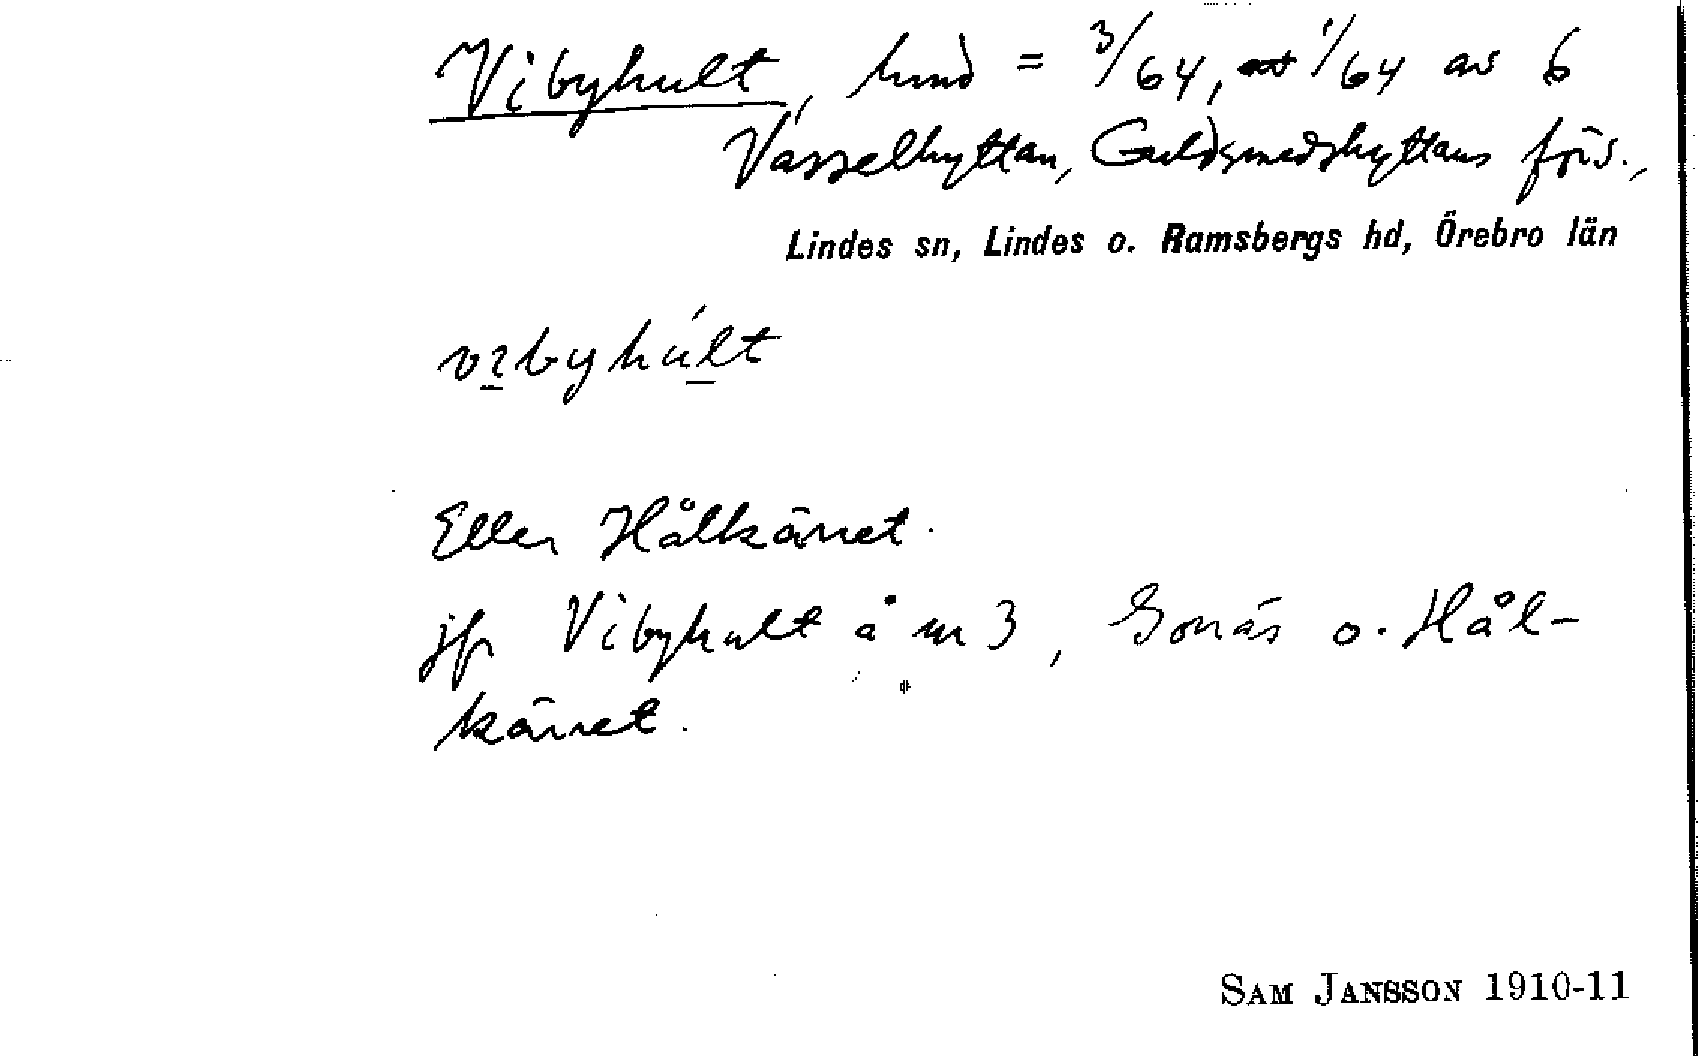 Vibyhult, hmd = 3/64, 1/64 av 6
Vasselhyttan, Guldsmedshyttans förs.,
Lindes sn, Lindes o. Ramsbergs hd, Örebro län
vibyhúlt
Eller Hålkärret.
jfr Vibyhult å nr 3, Gonäs o. Hål-
kärret.
SAM JANSSON 1910-11